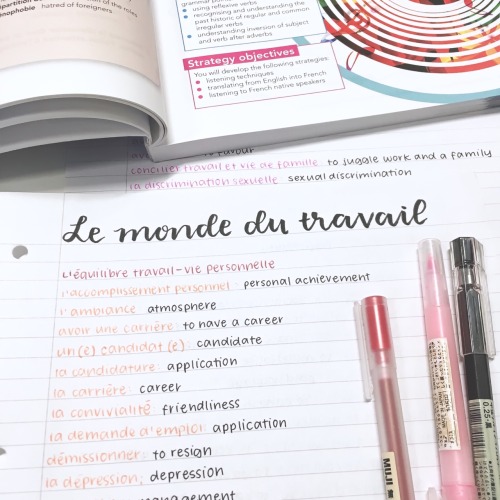 partition
of the roles
nophobie hatred of foreigners
using reflexive verbs
recognising and understanding the
past historic of regular and common
irregular verbs
understanding inversion of subject
and verb after adverbs
Strategy objectives
You will develop the following strategies:
listening techniques
translating from English into French
listening to French native speakers
favour
concilier travail et vie de famille to juggle work and a family
la discrimination sexuelle sexual discrimination
Le monde du travail
L'équilibre travail-vie personnelle
l'accomplissement personnel: personal achievement
l'ambiance atmosphere
avoir une carrière: to have a career
un(e) candidat(e): candidate
la candidature: application
la carrière: career
la convivialité friendliness
la demande d'emploi application
démissionner: to resign
la dépression: depression
management
MUJI
0.25